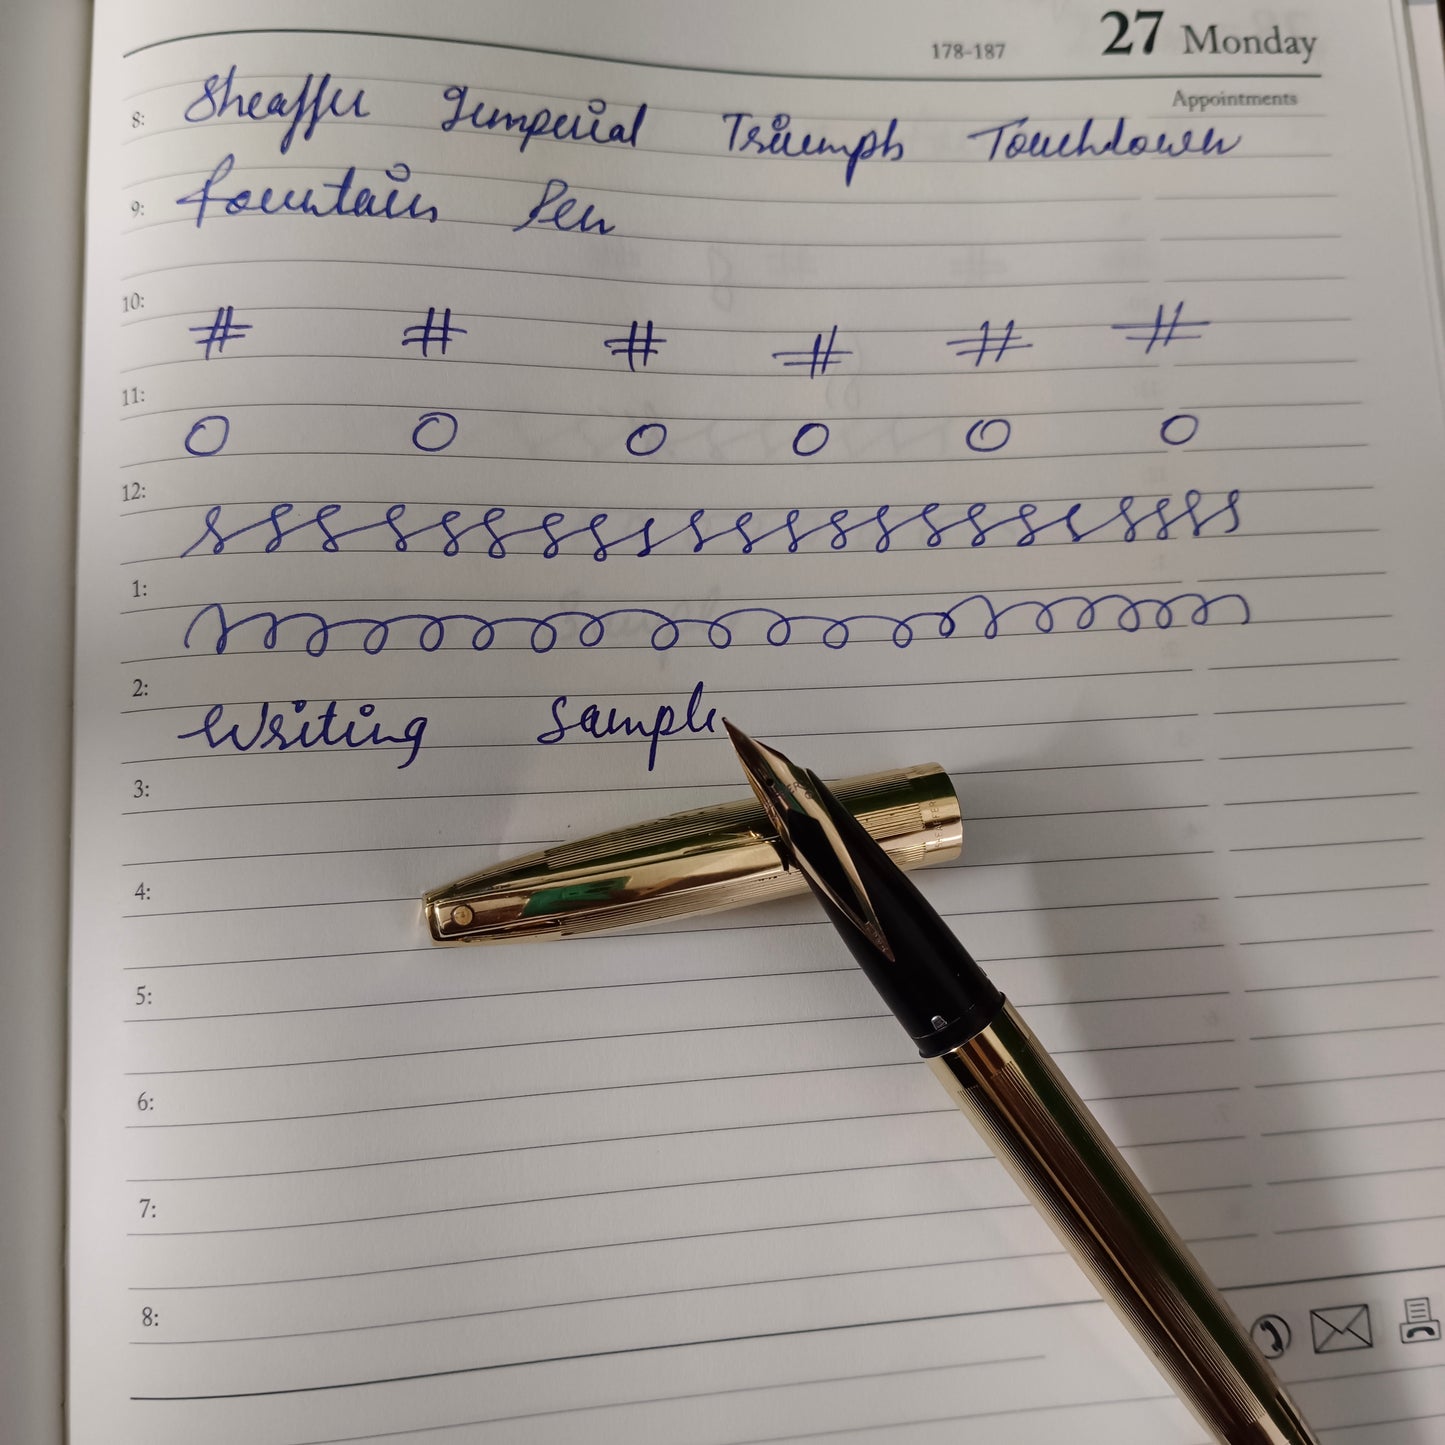 27 Monday
178-187
Appointments
8: Sheaffer Imperial Triumph Touchdown
9: fountain Pen
10:
# # # # # #
11:
O O O O O O
12:
1:
2: Writing Sample
3:
4:
5:
6:
7:
8:
SHEAFFER